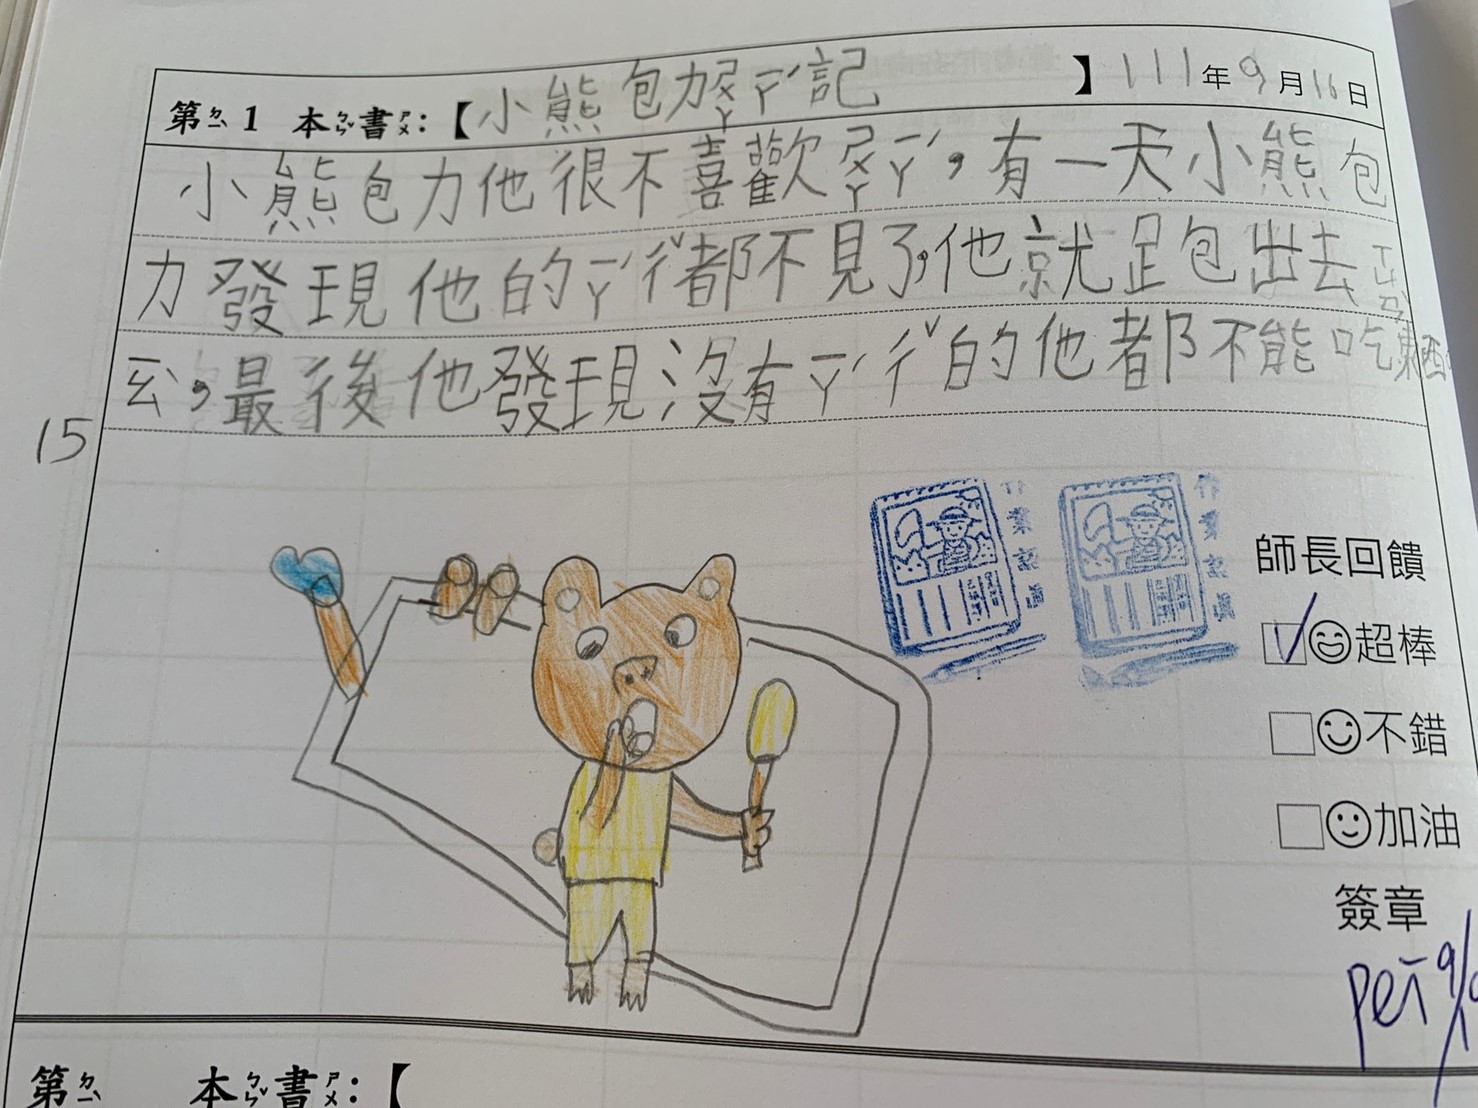 第ㄉㄧˋ 1 本ㄅㄣˇ書ㄕㄨ：【小熊包力ㄕㄨㄚ ㄧㄚˊ記】111年9月16日
小熊包力他很不喜歡ㄕㄨㄚ ㄧㄚˊ，有一天小熊包
力發現他的ㄧㄚˊㄔˇ都不見了，他就跑出去
ㄊˋ，最後他發現沒有ㄧㄚˊㄔˇ的他都不能吃東西
15
作業認真
作業認真
師長回饋
超棒
不錯
加油
簽章
pei
第ㄉㄧˋ 本ㄅㄣˇ書ㄕㄨ：【